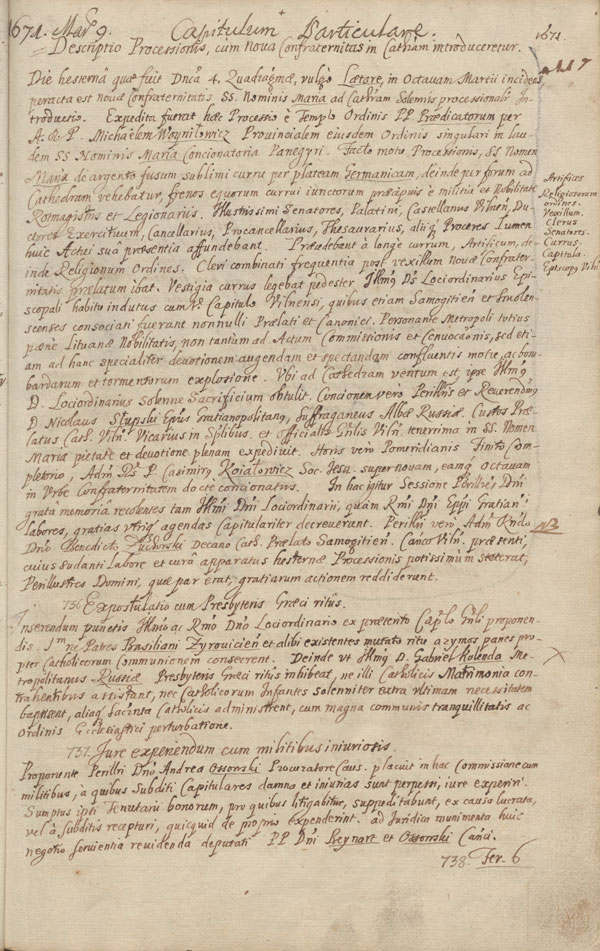 1671. Mar. 9. Capitulum Particulare. 1671
Descriptio Processionis, cum Nova Confraternitas in Cathram introduceretur.
Die hesterna quæ fuit Dnca 4. Quadragmæ, vulgo Lætare, in Octavam Martii incidens
peracta est Novæ Confraternitatis SS. Nominis Maria ad Cathram Solemnis processionalis In-
troductio. Expedita fuerat hæc Processio è Templo Ordinis PP Prædicatorum per
A. R. P. Michaelem Woyniłowicz Provincialem eiusdem Ordinis singulari in lau-
dem SS Nominis Maria Concionatoria Panegyri. Facto motu Processionis, SS Nomen
Maria de argento fusum sublimi curru per plateam Germanicam, deinde per forum ad
Cathedram vehebatur, frenos equorum currui iunctorum præcipuis è militia et Nobilitate
Rotmagistris et Legionariis. Illustrissimi Senatores, Palatini, Castellanus Vilnen, Du-
ctores Exercituum, Cancellarius, Procancellarius, Thesaurarius, aliiq Proceres Lumen
huic Actui suâ præsentia affundebant. Præcedebant à longè currum, Artificum, de-
inde Religionum Ordines. Cleri combinati frequentia post vexillum Novæ Confrater-
nitatis prælatum ibat. Vestigia currus legebat pedester Illmq Ds Lociordinarius Epi-
scopali habitu indutus cum Vr Capitulo Vilnensi, quibus etiam Samogitien et Smolen-
scenses consociati fuerant nonnulli Prælati et Canonici. Personante Metropoli totius
pæne Lituanæ Nobilitatis, non tantum ad Actum Commissionis et Convocaõnis, sed eti-
am ad hanc specialiter devotionem augendam et spectandam confluentis motu, ac bom-
bardarum et tormentorum explosione. Ubi ad Cathedram ventum est, ipse Illmq
D. Lociordinarius Solenne Sacrificium obtulit. Concionem vero Perillris et Reverendmq
D. Nicolaus Słupski Epus Gratianopolitanq, Suffraganeus Albæ Russiæ, Custos Præ-
latus Cath. Viln. Vicarius in Splibus, et Officialis Gnlis Viln. tenerrima in SS. Nomen
Maria pietate et devotione plenam expedivit. Horis vero Pomeridianis Finito Com-
pletorio, Adm Rs P. Casimirq Koiałowicz Soc. Jesu. super novam, eamq Octavam
in Urbe Confraternitatem docte concionatus. In hac igitur Sessione Perillres Dni
grata memoria recolentes tam Illmi Dni Lociordinarii, quàm Rmi Dni Eppi Gratian:i
labores, gratias utriq agendas Capitulariter decreverunt. Perillri vero Adm Rndo
Dno Benedicto Zuchorski Decano Cath. Prælato Samogitien. Canco Viln. præsenti,
cuius sudanti Labore et curâ apparatus hesternæ Processionis potissimum steterat,
Perillustres Domini, quæ par erat, gratiarum actionem reddiderunt.
Artifices
Religiosorum
ordines.
Vexillum.
Clerus
Senatores.
Currus.
Capitula.
Episcopq Viln
NB
736 Expostulatio cum Presbyteris Græci ritûs.
Inserendum punctis Illmo ac Rmo Dno Lociordinario ex præterito Caplo Gnli proponen-
dis. Imo ne Patres Basiliani Zyrovicien et alibi existentes mutato ritu azymos panes pro-
pter Catholicorum Communionem consecrent. Deinde ut Illmq D. Gabriel Kolenda Me-
tropolitanus Russiæ Presbyteris Græci ritûs inhibeat, ne illi Catholicis Matrimonia con-
trahentibus assistant, nec Catholicorum Infantes solenniter extra ultimam necessitatem
baptisent, aliaq Sacrnta Catholicis administrent, cum magna communis tranquillitatis ac
Ordinis Ecclesiastici perturbatione.
737. Iure experiendum cum militibus iniuriosis.
Proponente Perillri Dno Andrea Ossorski Procuratore Caus. placuit in hac Commissione cum
militibus, à quibus Subditi Capitulares damna et iniurias sunt perpessi, iure experiri.
Sumptus ipsi Tenutarii bonorum, pro quibus litigabitur, suppeditabunt, ex causa lucrata,
vel à subditis recepturi, quicquid de propriis expenderint. ad Iuridica munimenta huic
negotio servientia revidenda deputati PP Dni Beynart et Ossorski Canci.
738. Fer. 6